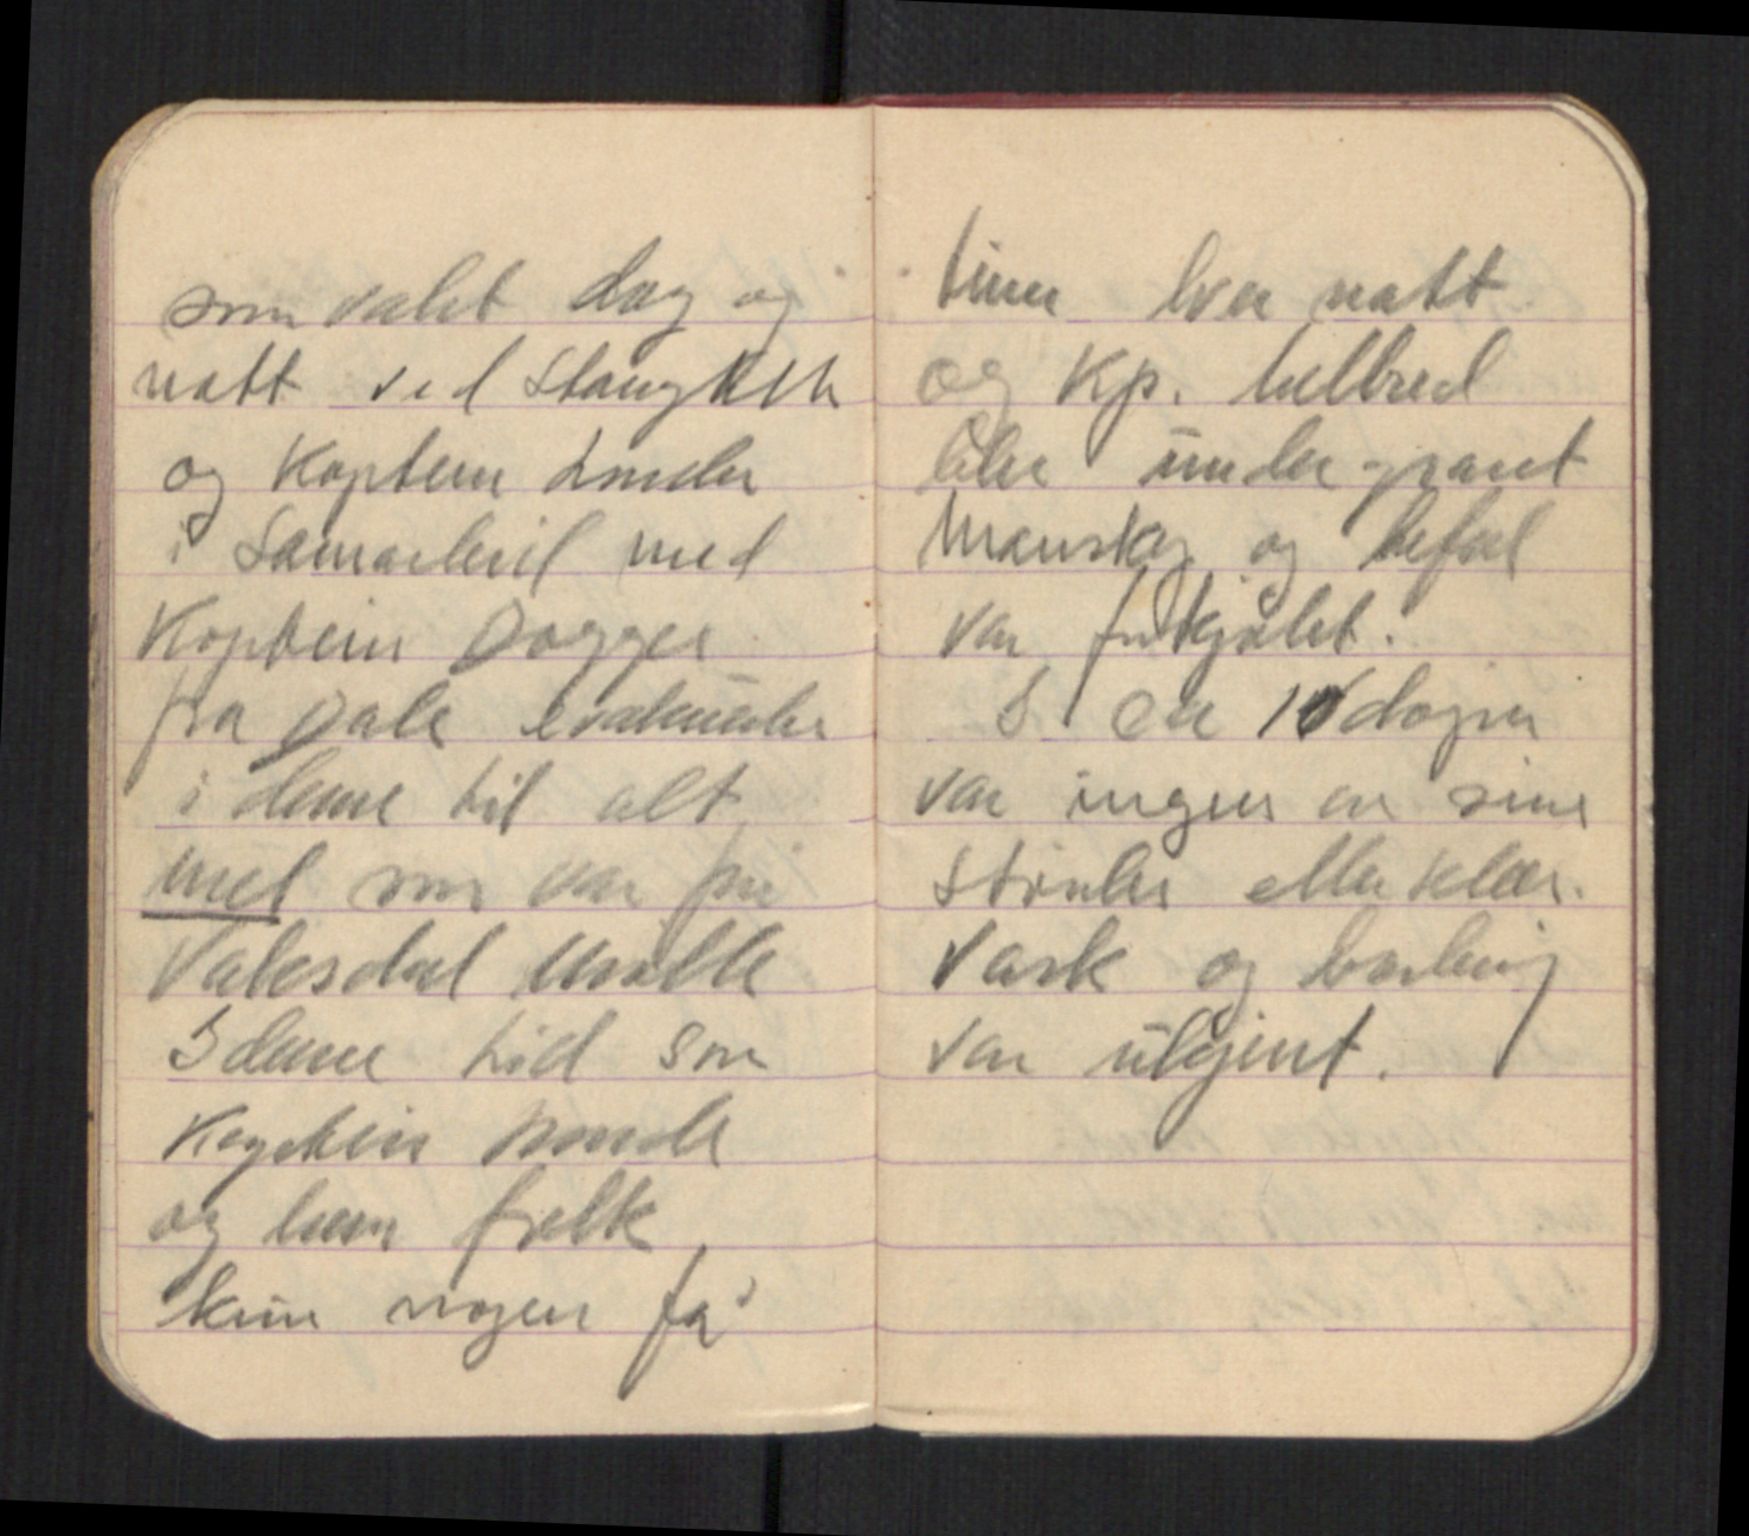 som valet dag og
natt ved Stanghelle
og Kaptein Lunder
i Samarbeid med
Kaptein Dogger
fra Dale evakuerte
i denne tid alt
mel som var på
Vaksdal Mølle
I denne tid sov
Kaptein Munde
og hans folk
kun nogen få
timer hver natt
og Kp. helbred
blev undergravet
Mannskap og befal
var forkjølet.
I ca 10 døgn
var ingen av sine
støvler eller klær.
Vask og barbering
var ukjent.